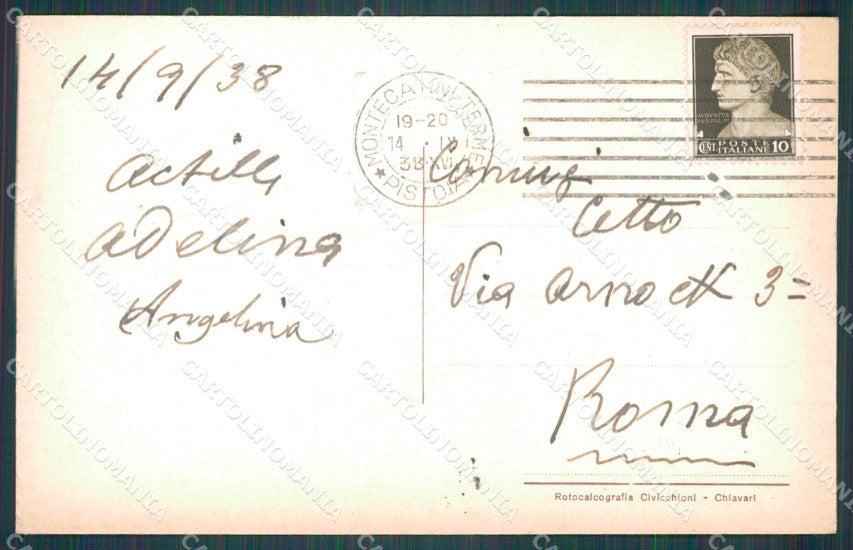 14/9/38
Achille
Adelina
Angelina
MONTECATINI TERME
19-20
14 . IX
38·XVI
★ PISTOIA ★
AVGVSTVS
CENT. POSTE ITALIANE 10
Coniugi
Cetto
Via Arno N 3=
Roma
Rotocalcografia Civicchioni - Chiavari
CARTOLINOMANIA